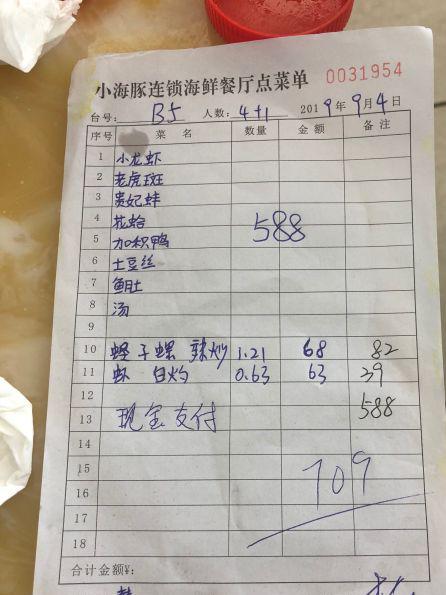 小海豚连锁海鲜餐厅点菜单 0031954
台号: B5 人数: 4+1 2019年9月4日
序号 菜 名 数量 金额 备注
1 小龙虾
2 老虎斑
3 贵妃蚌
4 花蛤
5 加积鸭 588
6 土豆丝
7 鱼肚
8 汤
9
10 蛏子螺 辣炒 1.21 68 82
11 虾 白灼 0.63 63 39
12 588
13 现金支付
14
15 709
16
17
18
合计金额¥: